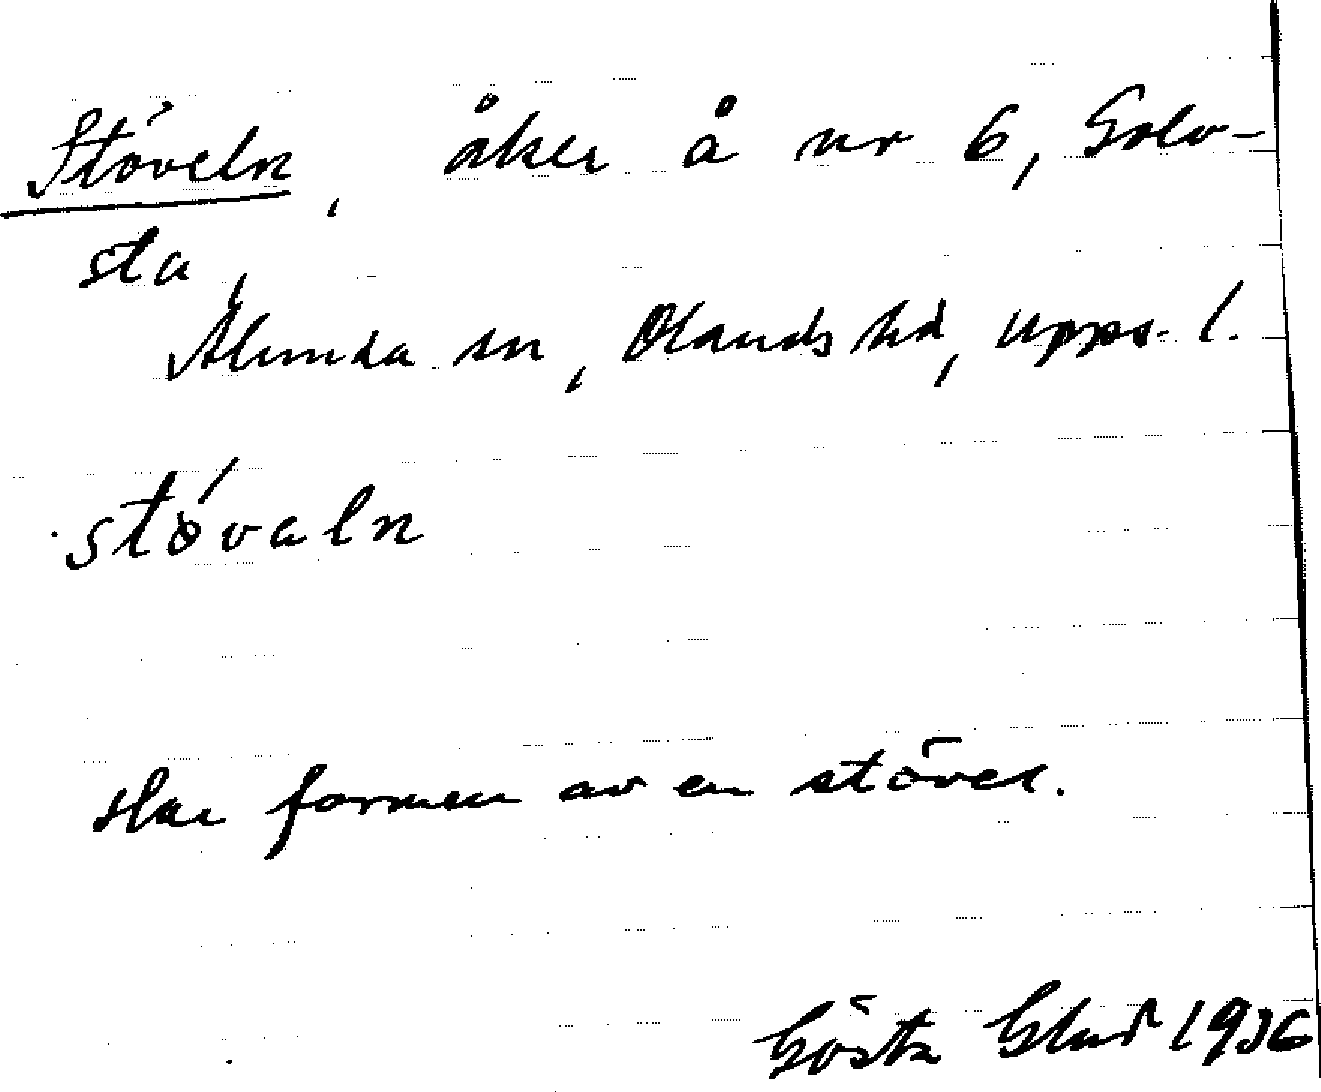 Stöveln, åker å nr 6, Golv-
sta,
Alunda sn, Olands hd, Upps. l.
stövaln
Har formen av en stövel.
Gösta 1936